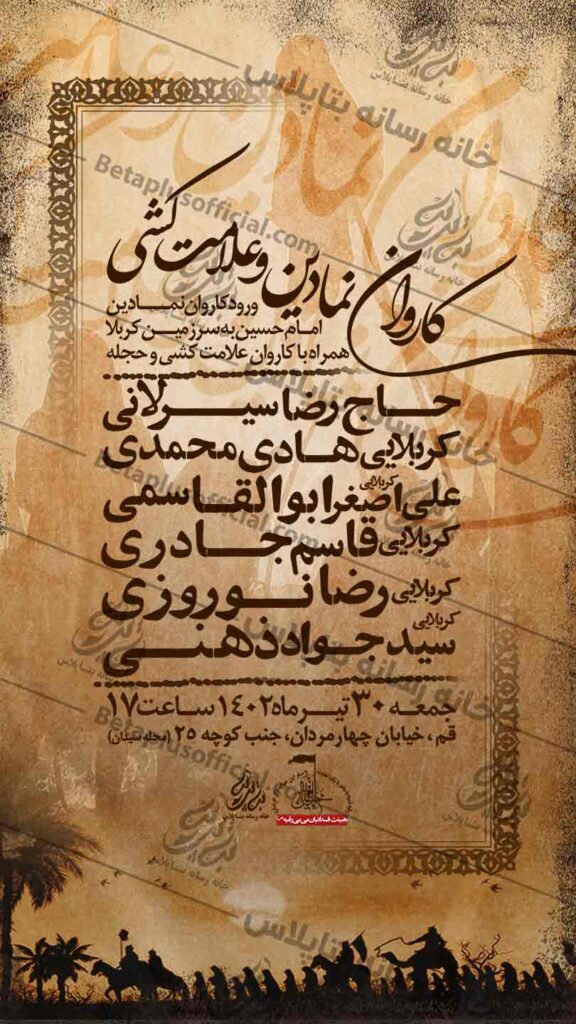 کاروان نمادین و علامت کشی
ورود کاروان نمادین
امام حسین به سرزمین کربلا
همراه با کاروان علامت کشی و حجله
حاج رضا سیرلانی
کربلایی هادی محمدی
کربلایی علی اصغر ابوالقاسمی
کربلایی قاسم جادری
کربلایی رضا نوروزی
کربلایی سید جواد ذهنی
جمعه ۳۰ تیر ماه ۱۴۰۲ ساعت ۱۷
قم ، خیابان چهارمردان، جنب کوچه ۲۵ (محله سیدان)
خانه رسانه بتاپلاس
Betaplusofficial.com